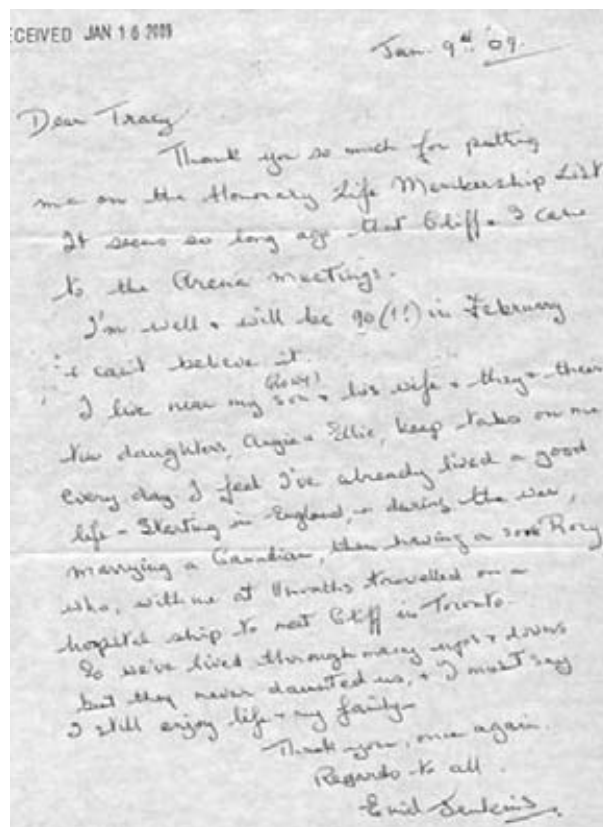 ECEIVED JAN 16 2009
Jan. 9th 09.
Dear Tracy
Thank you so much for putting
me on the Honorary Life Membership List
It seems so long ago that Cliff & I came
to the Arena meetings.
I'm well & will be 90(!!) in February
i can't believe it.
(Rory)
I live near my son & his wife & they & their
two daughters, Angie & Ellie, keep tabs on me
every day I feel I've already lived a good
life - Starting in England, & during the war,
marrying a Canadian, then having a son Rory
who, with me at months travelled on a
hospital ship to meet Cliff in Toronto.
So we've lived through many ups & downs
but they never daunted us, & I must say
I still enjoy life & my family
Thank you, once again.
Regards to all.
Enid Jenkins.